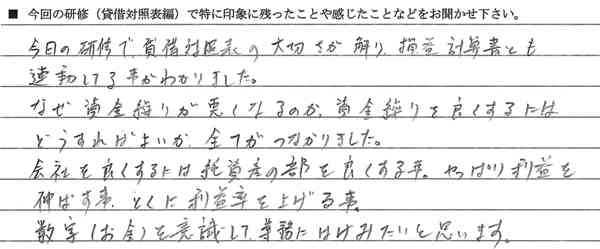 ■ 今回の研修（貸借対照表編）で特に印象に残ったことや感じたことなどをお聞かせ下さい。
今日の研修で、貸借対照表の大切さが解り、損益計算書とも
連動してる事がわかりました。
なぜ資金繰りが悪くなるのか、資金繰りを良くするには
どうすればよいか、全てがつながりました。
会社を良くするには純資産の部を良くする事。やっぱり利益を
伸ばす事、とくに利益率を上げる事。
数字（お金）を意識して、業務にはげみたいと思います。